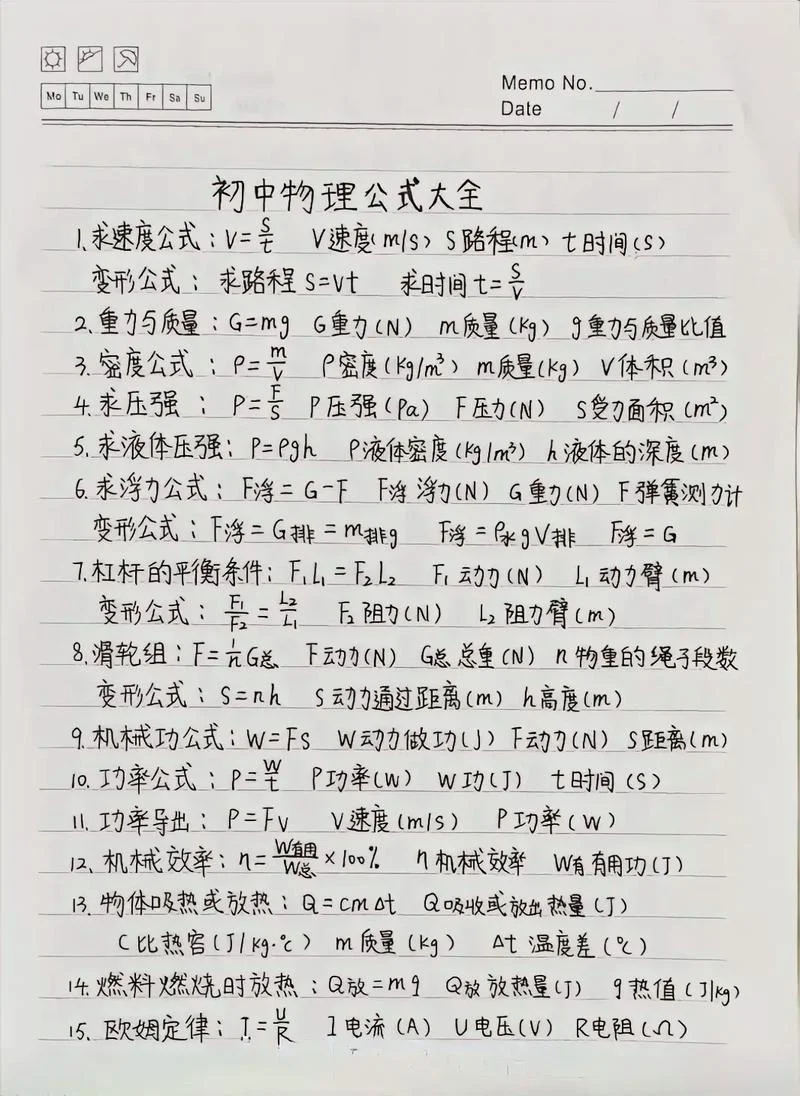 Mo Tu We Th Fr Sa Su
Memo No.
Date / /
初中物理公式大全
1.求速度公式：V=S/t V速度(m/s) S路程(m) t时间(s)
变形公式：求路程S=Vt 求时间t=S/V
2.重力与质量：G=mg G重力(N) m质量(kg) g重力与质量比值
3.密度公式：ρ=m/V ρ密度(kg/m³) m质量(kg) V体积(m³)
4.求压强：P=F/S P压强(Pa) F压力(N) S受力面积(m²)
5.求液体压强：P=ρgh ρ液体密度(kg/m³) h液体的深度(m)
6.求浮力公式：F浮=G-F F浮浮力(N) G重力(N) F弹簧测力计
变形公式：F浮=G排=m排g F浮=ρ水gV排 F浮=G
7.杠杆的平衡条件：F₁L₁=F₂L₂ F₁动力(N) L₁动力臂(m)
变形公式：F₁/F₂=L₂/L₁ F₂阻力(N) L₂阻力臂(m)
8.滑轮组：F=1/n G总 F动力(N) G总总重(N) n物重的绳子段数
变形公式：S=nh S动力通过距离(m) h高度(m)
9.机械功公式：W=Fs W动力做功(J) F动力(N) S距离(m)
10.功率公式：P=W/t P功率(W) W功(J) t时间(s)
11.功率导出：P=Fv V速度(m/s) P功率(W)
12.机械效率：η=W有用/W总×100% η机械效率 W有有用功(J)
13.物体吸热或放热：Q=cmΔt Q吸收或放出热量(J)
C比热容(J/kg·℃) m质量(kg) Δt温度差(℃)
14.燃料燃烧时放热：Q放=mq Q放放热量(J) q热值(J/kg)
15.欧姆定律：I=U/R I电流(A) U电压(V) R电阻(Ω)